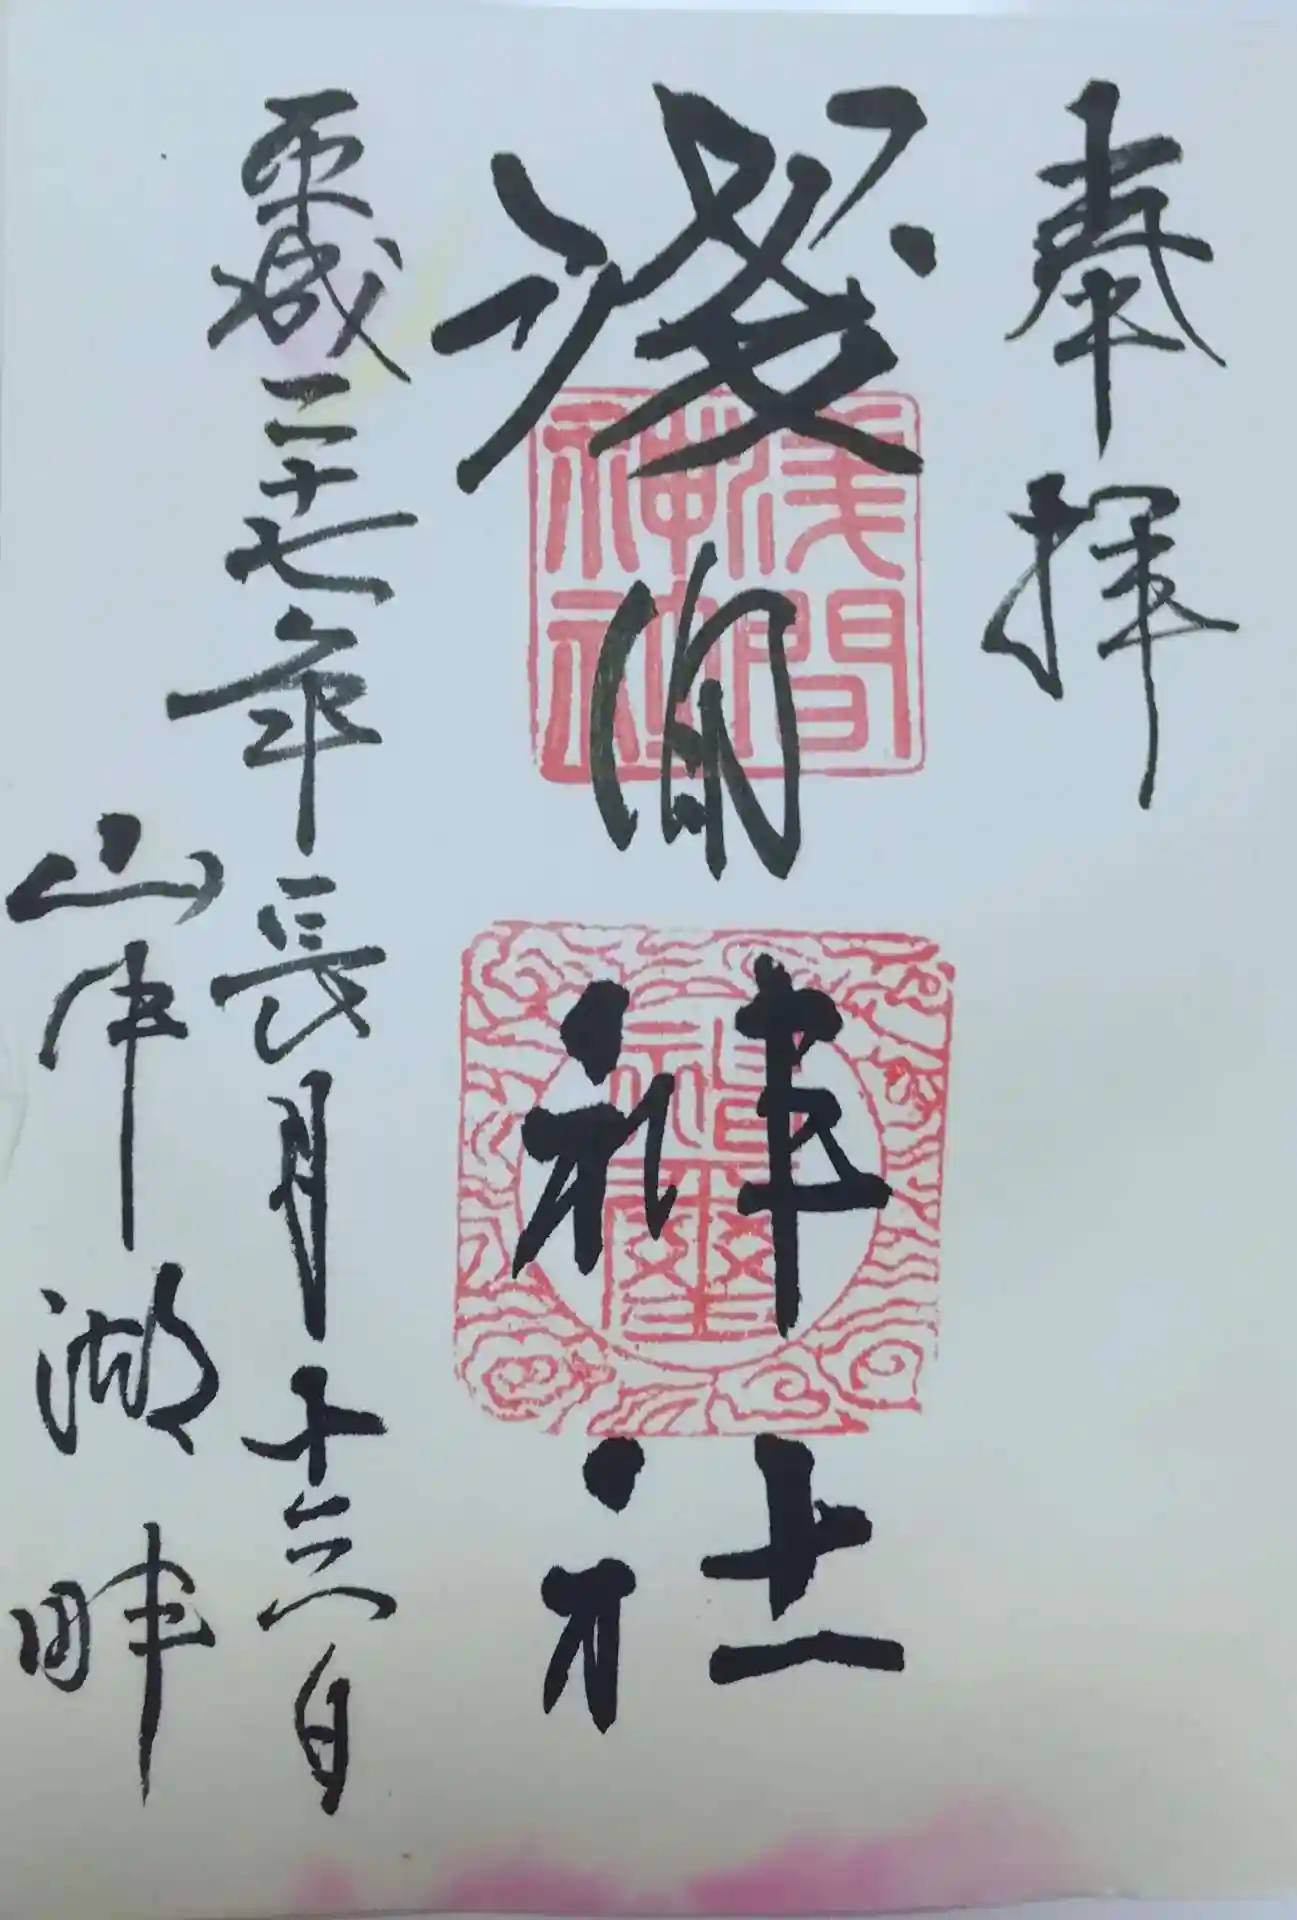 奉拝
淺間神社
平成二十七年長月十六日
山中湖畔
浅間神社